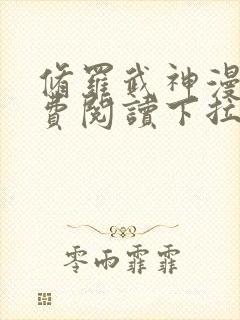 脩羅武神漫
費閱讀下拉
零雨霏霏